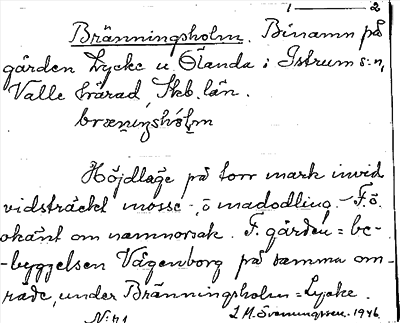 1 — 2
Bränningsholm. Binamn på
gården Lycke u Ölanda i Istrum s:n,
Valle härad, Skb. län.
bræniŋshólm
Höjdläge på torr mark invid
vidsträckt mosse- o madodling. - F. ö.
okänt om namnorsak. F. gården = be-
-byggelsen Vägenborg på samma om-
råde, under Bränningsholm = Lycke.
N: 71 I. M. Svenungsson. 1946